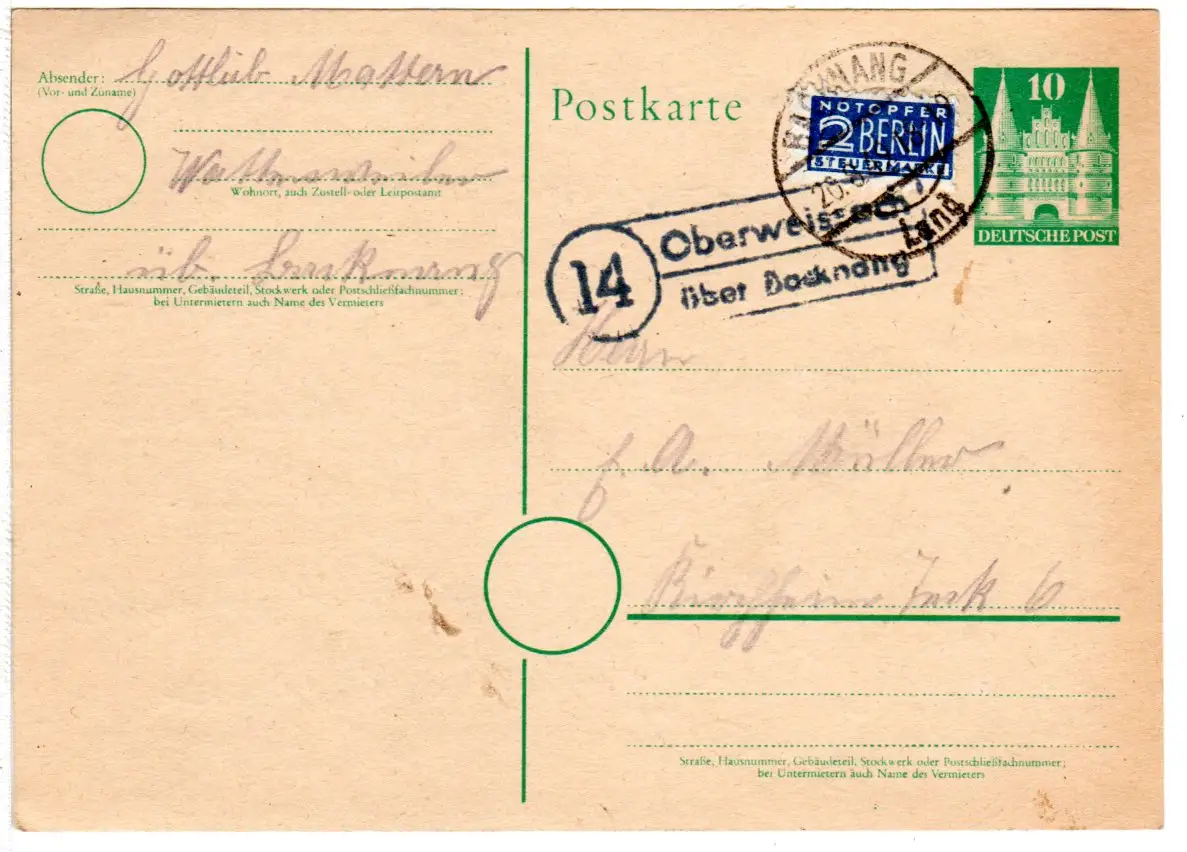 Absender: Gottlieb Mattern
(Vor- und Zuname)
Wohnort, auch Zustell- oder Leitpostamt
üb. Backnang
Straße, Hausnummer, Gebäudeteil, Stockwerk oder Postschließfachnummer;
bei Untermietern auch Name des Vermieters
Postkarte
BACKNANG
Land
NOTOPFER
2 BERLIN
STEUERMARKE
10
DEUTSCHE POST
14
Oberweissach
über Backnang
Herrn
f. A. Müller
Kirchheim Teck 6
Straße, Hausnummer, Gebäudeteil, Stockwerk oder Postschließfachnummer;
bei Untermietern auch Name des Vermieters